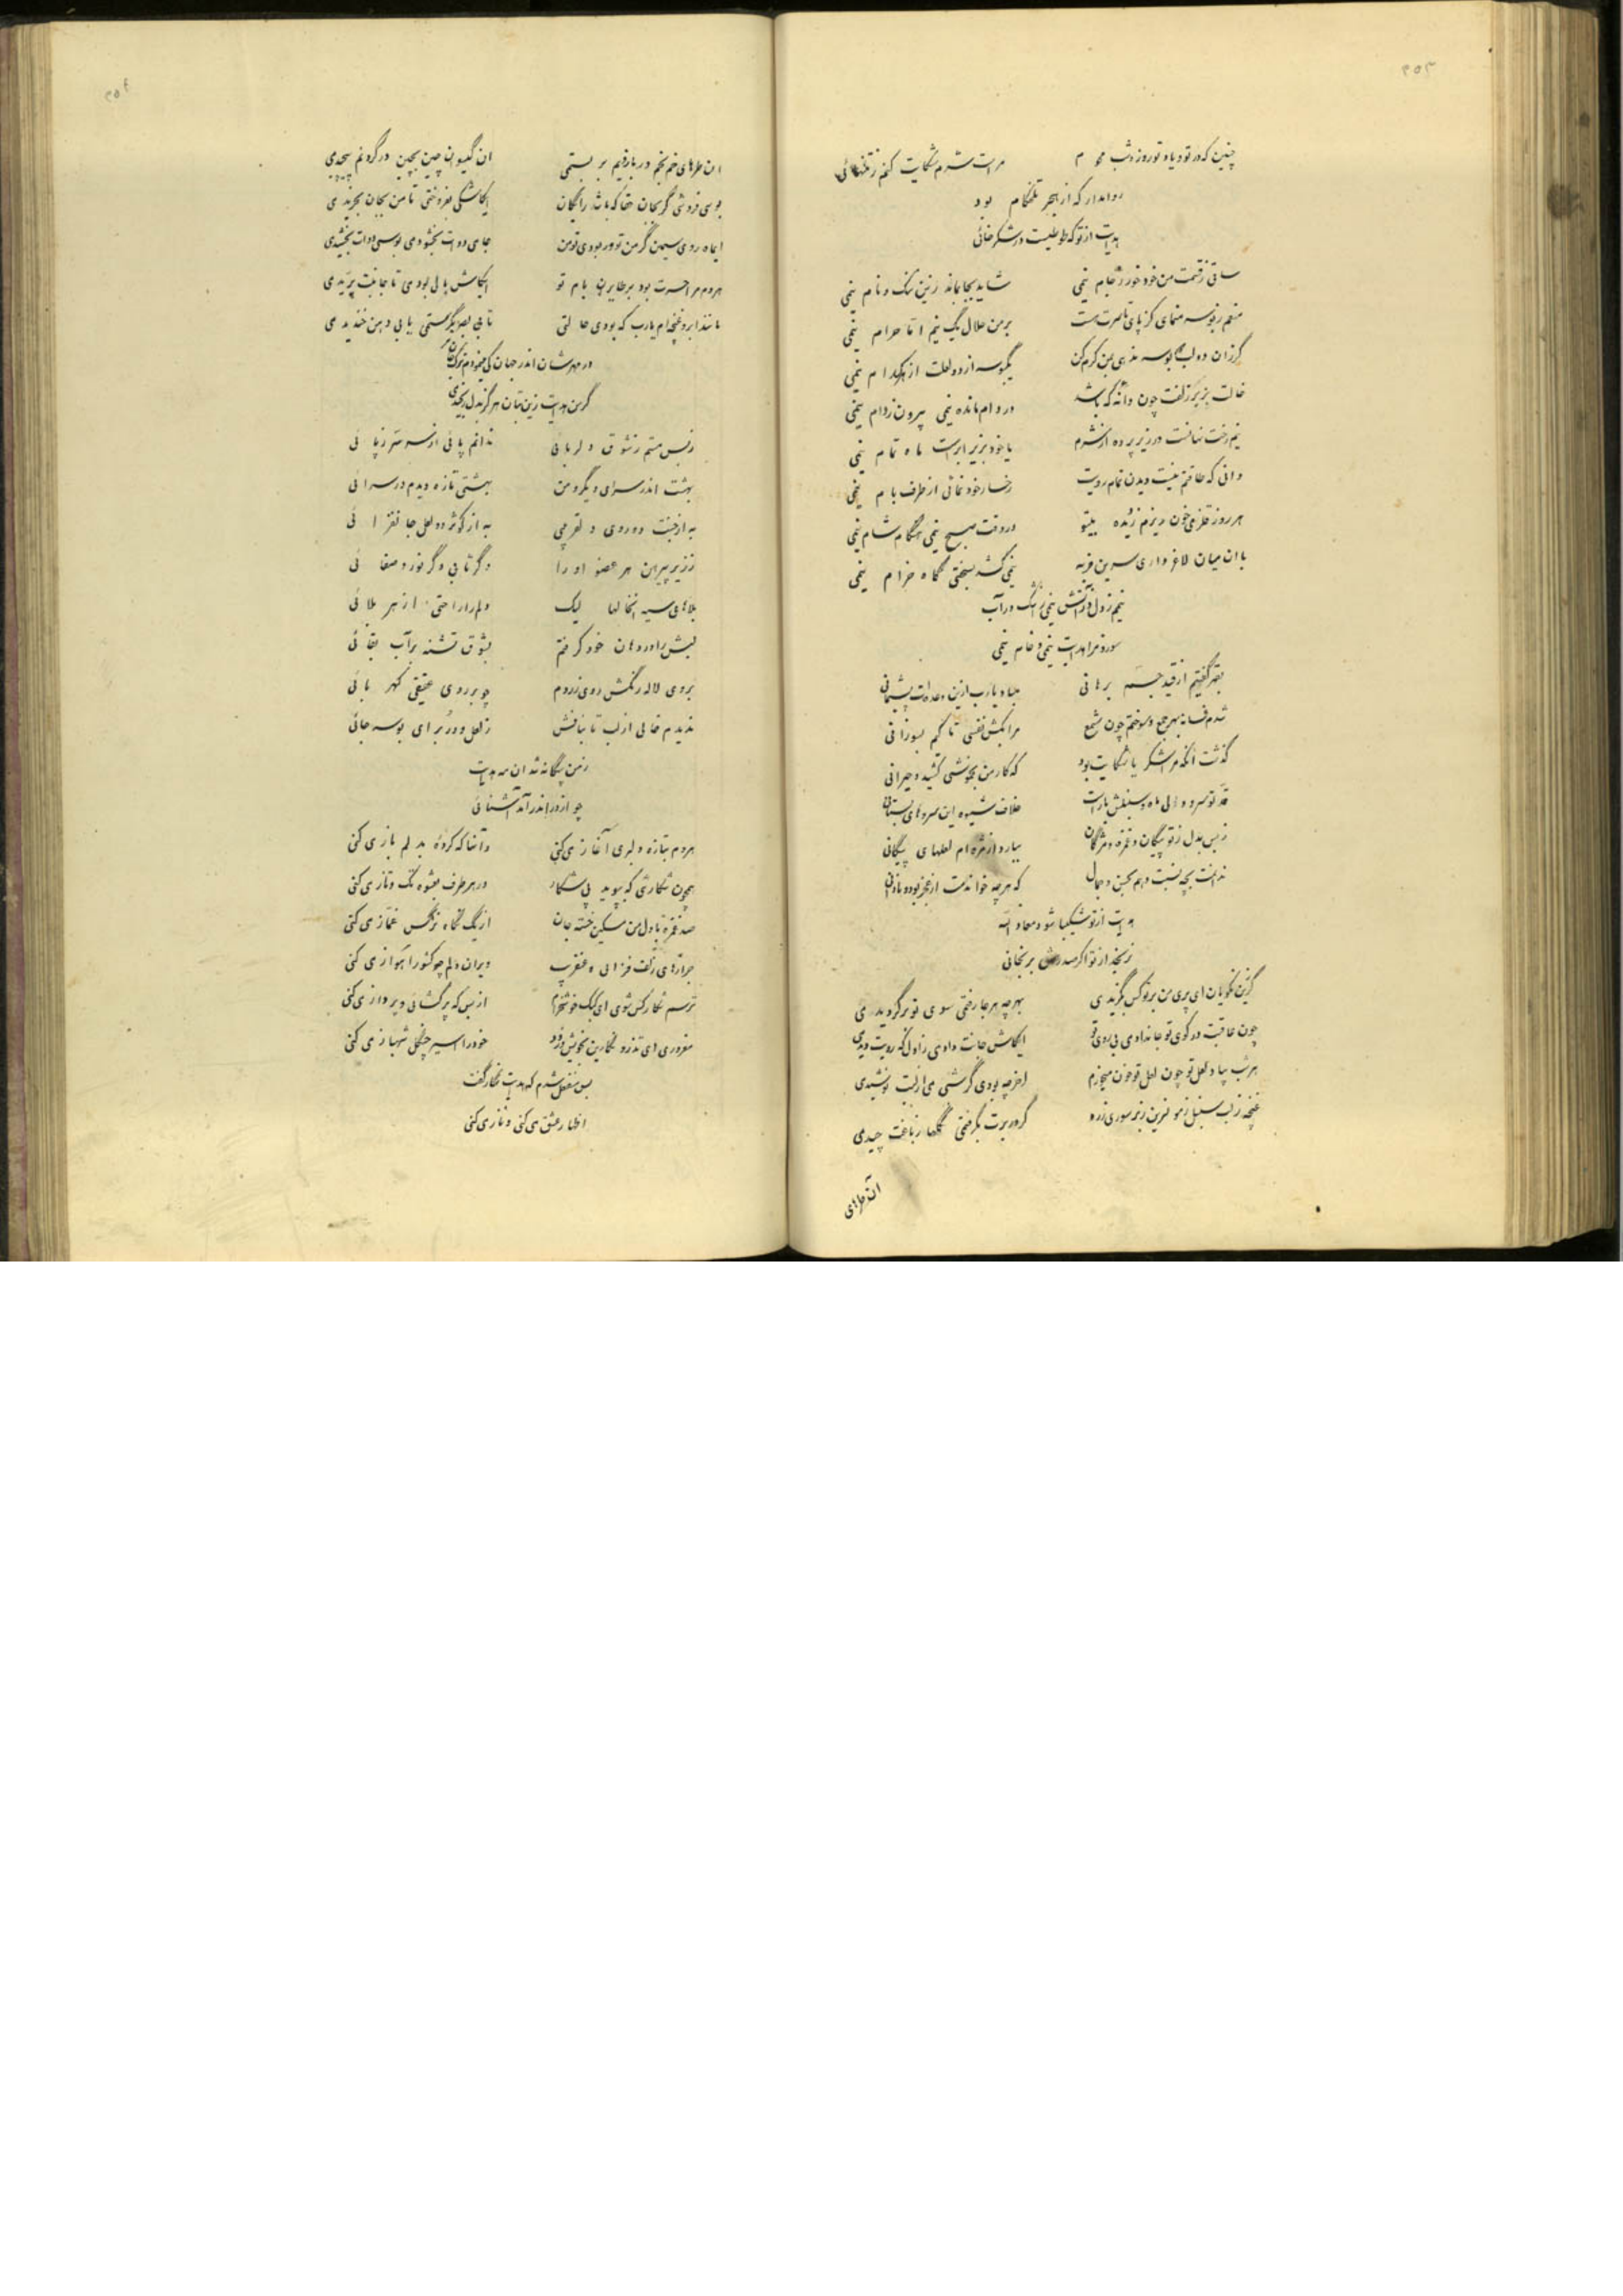 ۳۵۳
چنین که در تو و یاد تو روز و شب محوم مراست شرم شکایت کنم ز تنهائی
روا مدار که از هجر تلخکام بود
هدایت از تو که طوطیت و شکرخائی
ساقی ز قسمت من خود خور ز جام نیمی شاید بجا بماند زین ننگ و نام نیمی
برمن حلال یک نیم اتا حرام نیمی
گر زان دو لب بوسه ندهی بمن کرم کن یکبوسه از دو لعلت از هرکدام نیمی
خالت بزیر زلفت چون دانه که باشد در دام مانده نیمی بیرون ز دام نیمی
نیم رخت نهانست در زیر پرده از شرم یا خود بزیر ابرست ماه تمام نیمی
دانی که طاقتم نیست دیدن تمام رویت رخسار خود نمائی از طرف بام نیمی
هر روز قلزمی خون ریزم ز دیده بیتو در وقت صبح نیمی هنگام شام نیمی
با ان میان لاغر داری سرین فربه نیمی کشد بسختی گاه خرام نیمی
نیمم ز دل در آتش نیمی ز اشک در آب
هدایت نیمی و خام نیمی
گفتیم از قید جسم برهانی مبادیارب ازین وعده‌ات پشیمانی
شدم فسانه بهر جمع و سوختم چون شمع مرا بکش نفسی تا کیم بسوزانی
گذشت آنکه مرا شکر یا شکایت بود که کار من بخموشی کشید و حیرانی
خلاف شیوه این سروهای بستانی
ز بس بدل ز تو پیکان و غمزه و مژگان ببارد از مژه‌ام لعلهای پیکانی
ندانمت بچه نسبت دهم بحسن و جمال که هرچه خوانمت از عجز بود و نادانی
هدایت از تو شکیبا شود معاذ الله
نرنجد از تو اگر صد رهش برنجانی
گرزین نکویان ای پری من بر تو کس بگزیدمی بهرچه هر جا رفتمی سوی تو برگردیدمی
چون عاقبت در کوی تو جاندادمی بی روی تو ایکاش جانت دادمی ز اول که رویت دیدمی
هر شب بیاد لعل تو چون لعل تو خون میخورم اخر چه بودی گر شبی می از لبت نوشیدمی
غنچه ز لب سنبل ز مو نسرین ز بر سوری ز رو گر در برت بگرفتمی گلها ز باغت چیدمی
ان طرهای
۳۵۴
ان طرهای خم بخم در بازویم بر بستمی ان گیسوان چین بچین در گردنم پیچیدمی
بوسی فروشی گر بجان حقا که باشد رایگان ایکاشکی بفروختی تا من بجان بخریدمی
ایماه روی سیمتن گر من تو ور بودی تو من
هردم مرا حسرت بود بر طایران بام تو ایکاش بالی بودمی تا جانبت پریدمی
مانند ابر و غنچه‌ام یارب که بودی حالتی تا بی بصر بگرستمی یا بی دهن خندیدمی
در مهرشان اندر جهان کی
گر من هدایت زین بتان هرگز بدل رنجیدمی
ز بس مستم ز شوق دلربائی ندانم پائی از سر سر ز پائی
بهشت اندر سرای دیگر و من بهشتی تازه دیدم در سرائی
به از جنت ده روی دلفریبی به از کوثر دو لعل جانفزائی
ز زیر پیرهن هر عضو او را دگر تابی و گر نور و صفائی
بلاهای سیه انخالها لیک دلم را راحتی از هر بلائی
لبش را در دهان خود گرفتم بشوق تشنه بر آب بقائی
بروی لاله رنگش روی زردم چو بر روی عقیقی کهربائی
ندیدم خالی از لب تا بنافش ز لعل و در برای بوسه جائی
ز من بیگانه شد ان مه هدایت
چو از در اندر آمد آشنائی
هردم بتازه دلبری آغاز میکنی وآنها که کرده بدلم باز میکنی
همچون شکاری که بپوید پی شکار در هر طرف بعشوه تک و تاز میکنی
صد غمزه با دل من مسکین خسته جان از یک نگاه نرگس غماز میکنی
جرارهای زلف فزائی ه عقرب ویران دلم چو کشور اهواز میکنی
ترسم شکار کس شوی ای کبک خوشخرام از بس که پر گشائی و پرواز میکنی
مغروری ای تذرو نگارین بخویش و زود خود را اسیر چنگل شهباز میکنی
بس منفعل شدم که هدایت نگار گفت
اظهار عشق میکنی و ناز میکنی